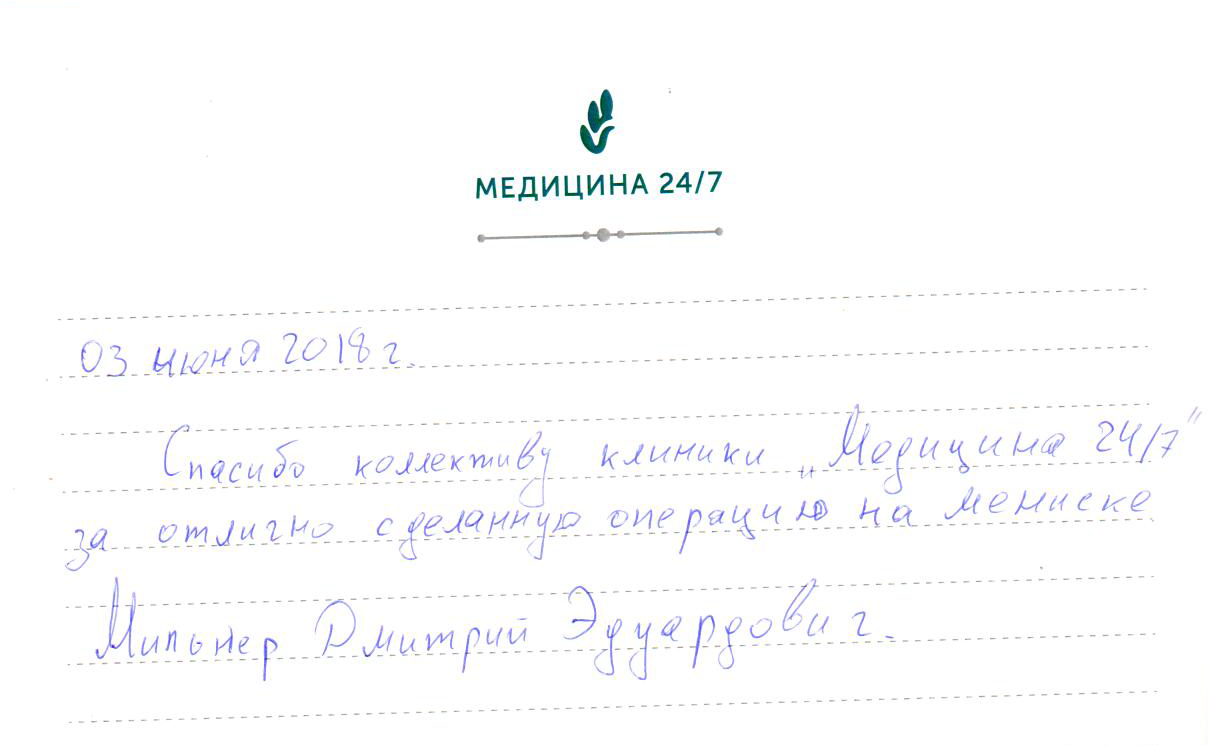 МЕДИЦИНА 24/7
03 июня 2018 г.
Спасибо коллективу клиники „Медицина 24/7"
за отлично сделанную операцию на мениске
Мильнер Дмитрий Эдуардович.